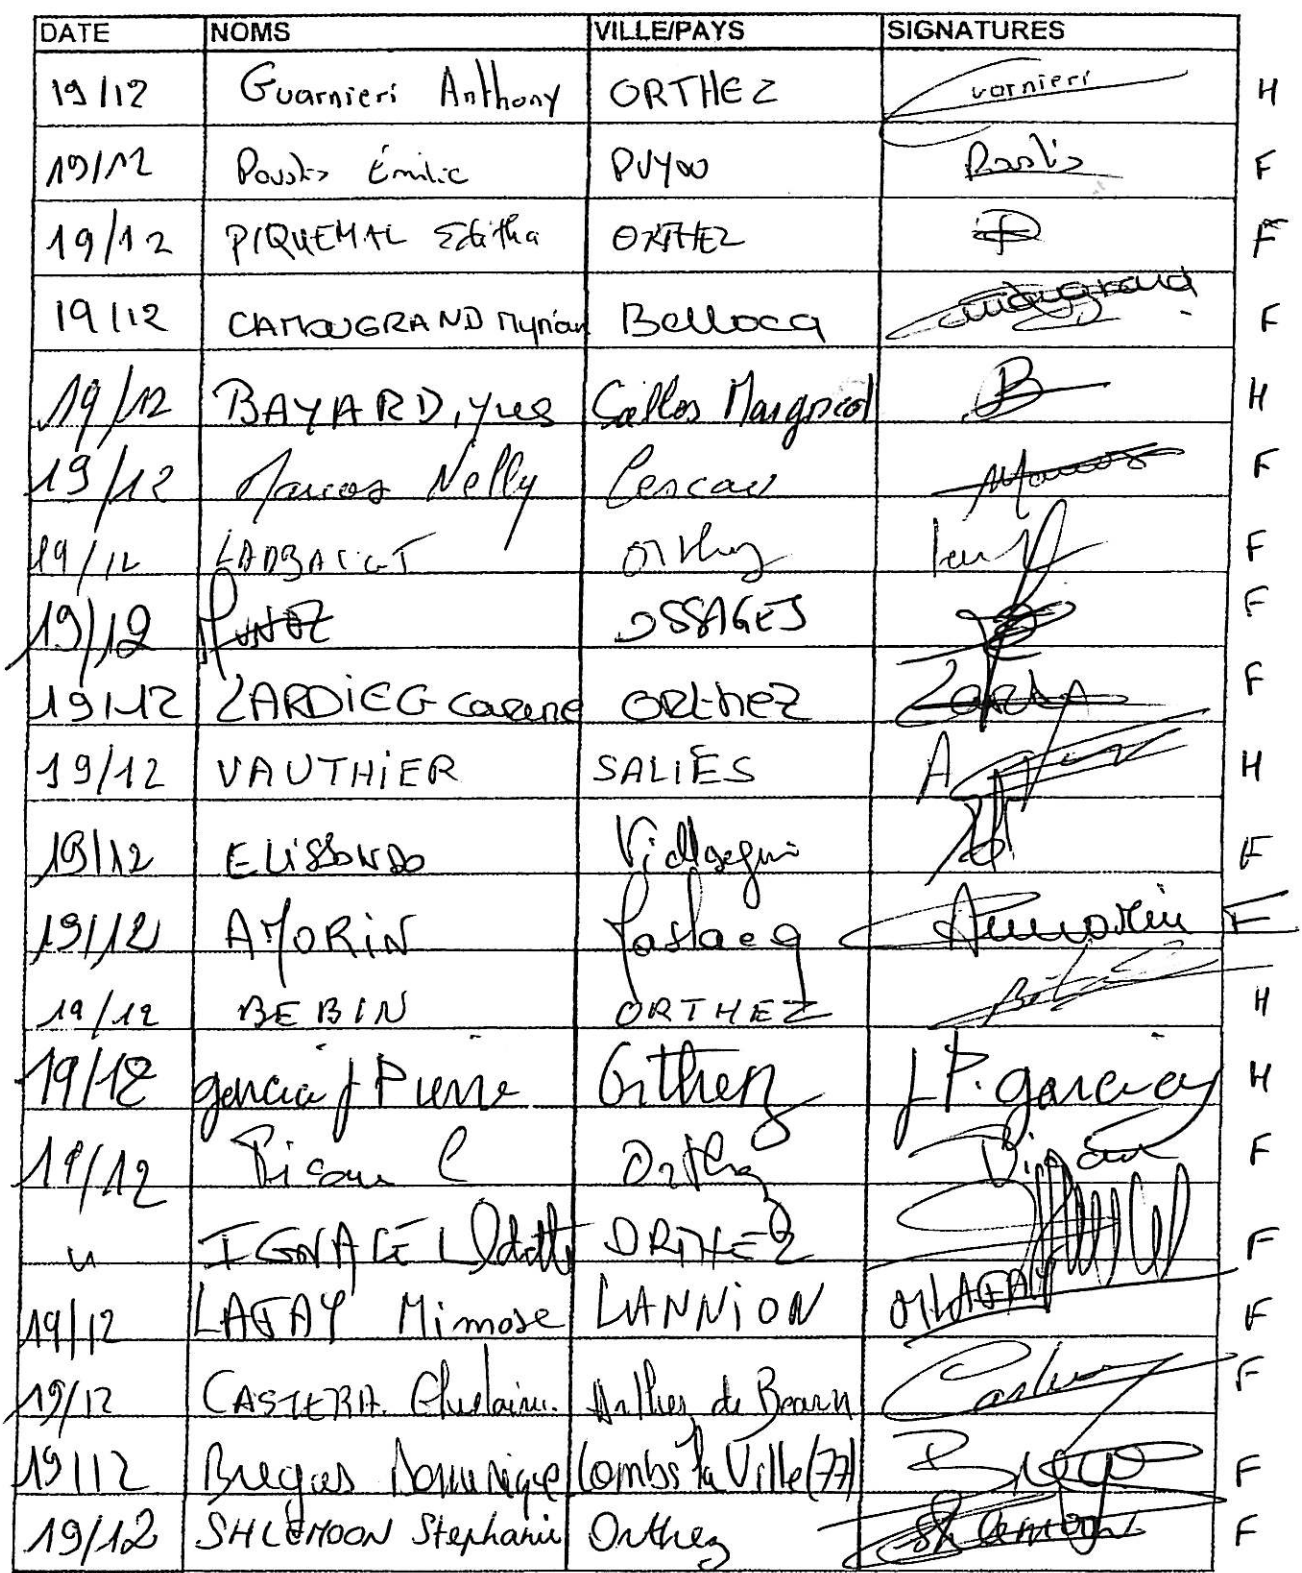 DATE NOMS VILLE/PAYS SIGNATURES
19/12 Guarnieri Anthony ORTHEZ Guarnieri H
19/12 Émilie PUYOO F
19/12 PIQUEMAL Editha ORTHEZ F
19/12 CAMOUGRAND Myriam Bellocq Camougrand F
19/12 BAYARD, Yves B H
19/12 Marcos Nelly Lescar Marcos F
19/12 Orthez F
19/12 MUNOZ OSSAGES F
19/12 LARDIEG Carine ORthEZ F
19/12 VAUTHIER SALIES A H
19/12 ELISSONDO F
19/12 AMORIN Castaeq Amorin F
19/12 BEBIN ORTHEZ H
19/12 garcia J Pierre Orthez J P. garcia H
19/12 Orthez F
" IGNACEL Odette ORTHEZ F
19/12 LAFAY Mimose LANNION M LAFAY F
19/12 CASTERA Ghislaine Arthez de Bearn F
19/12 Bregas Dominique Combs la Ville (77) F
19/12 SHLEMOON Stephanie Orthez Shlemoon F